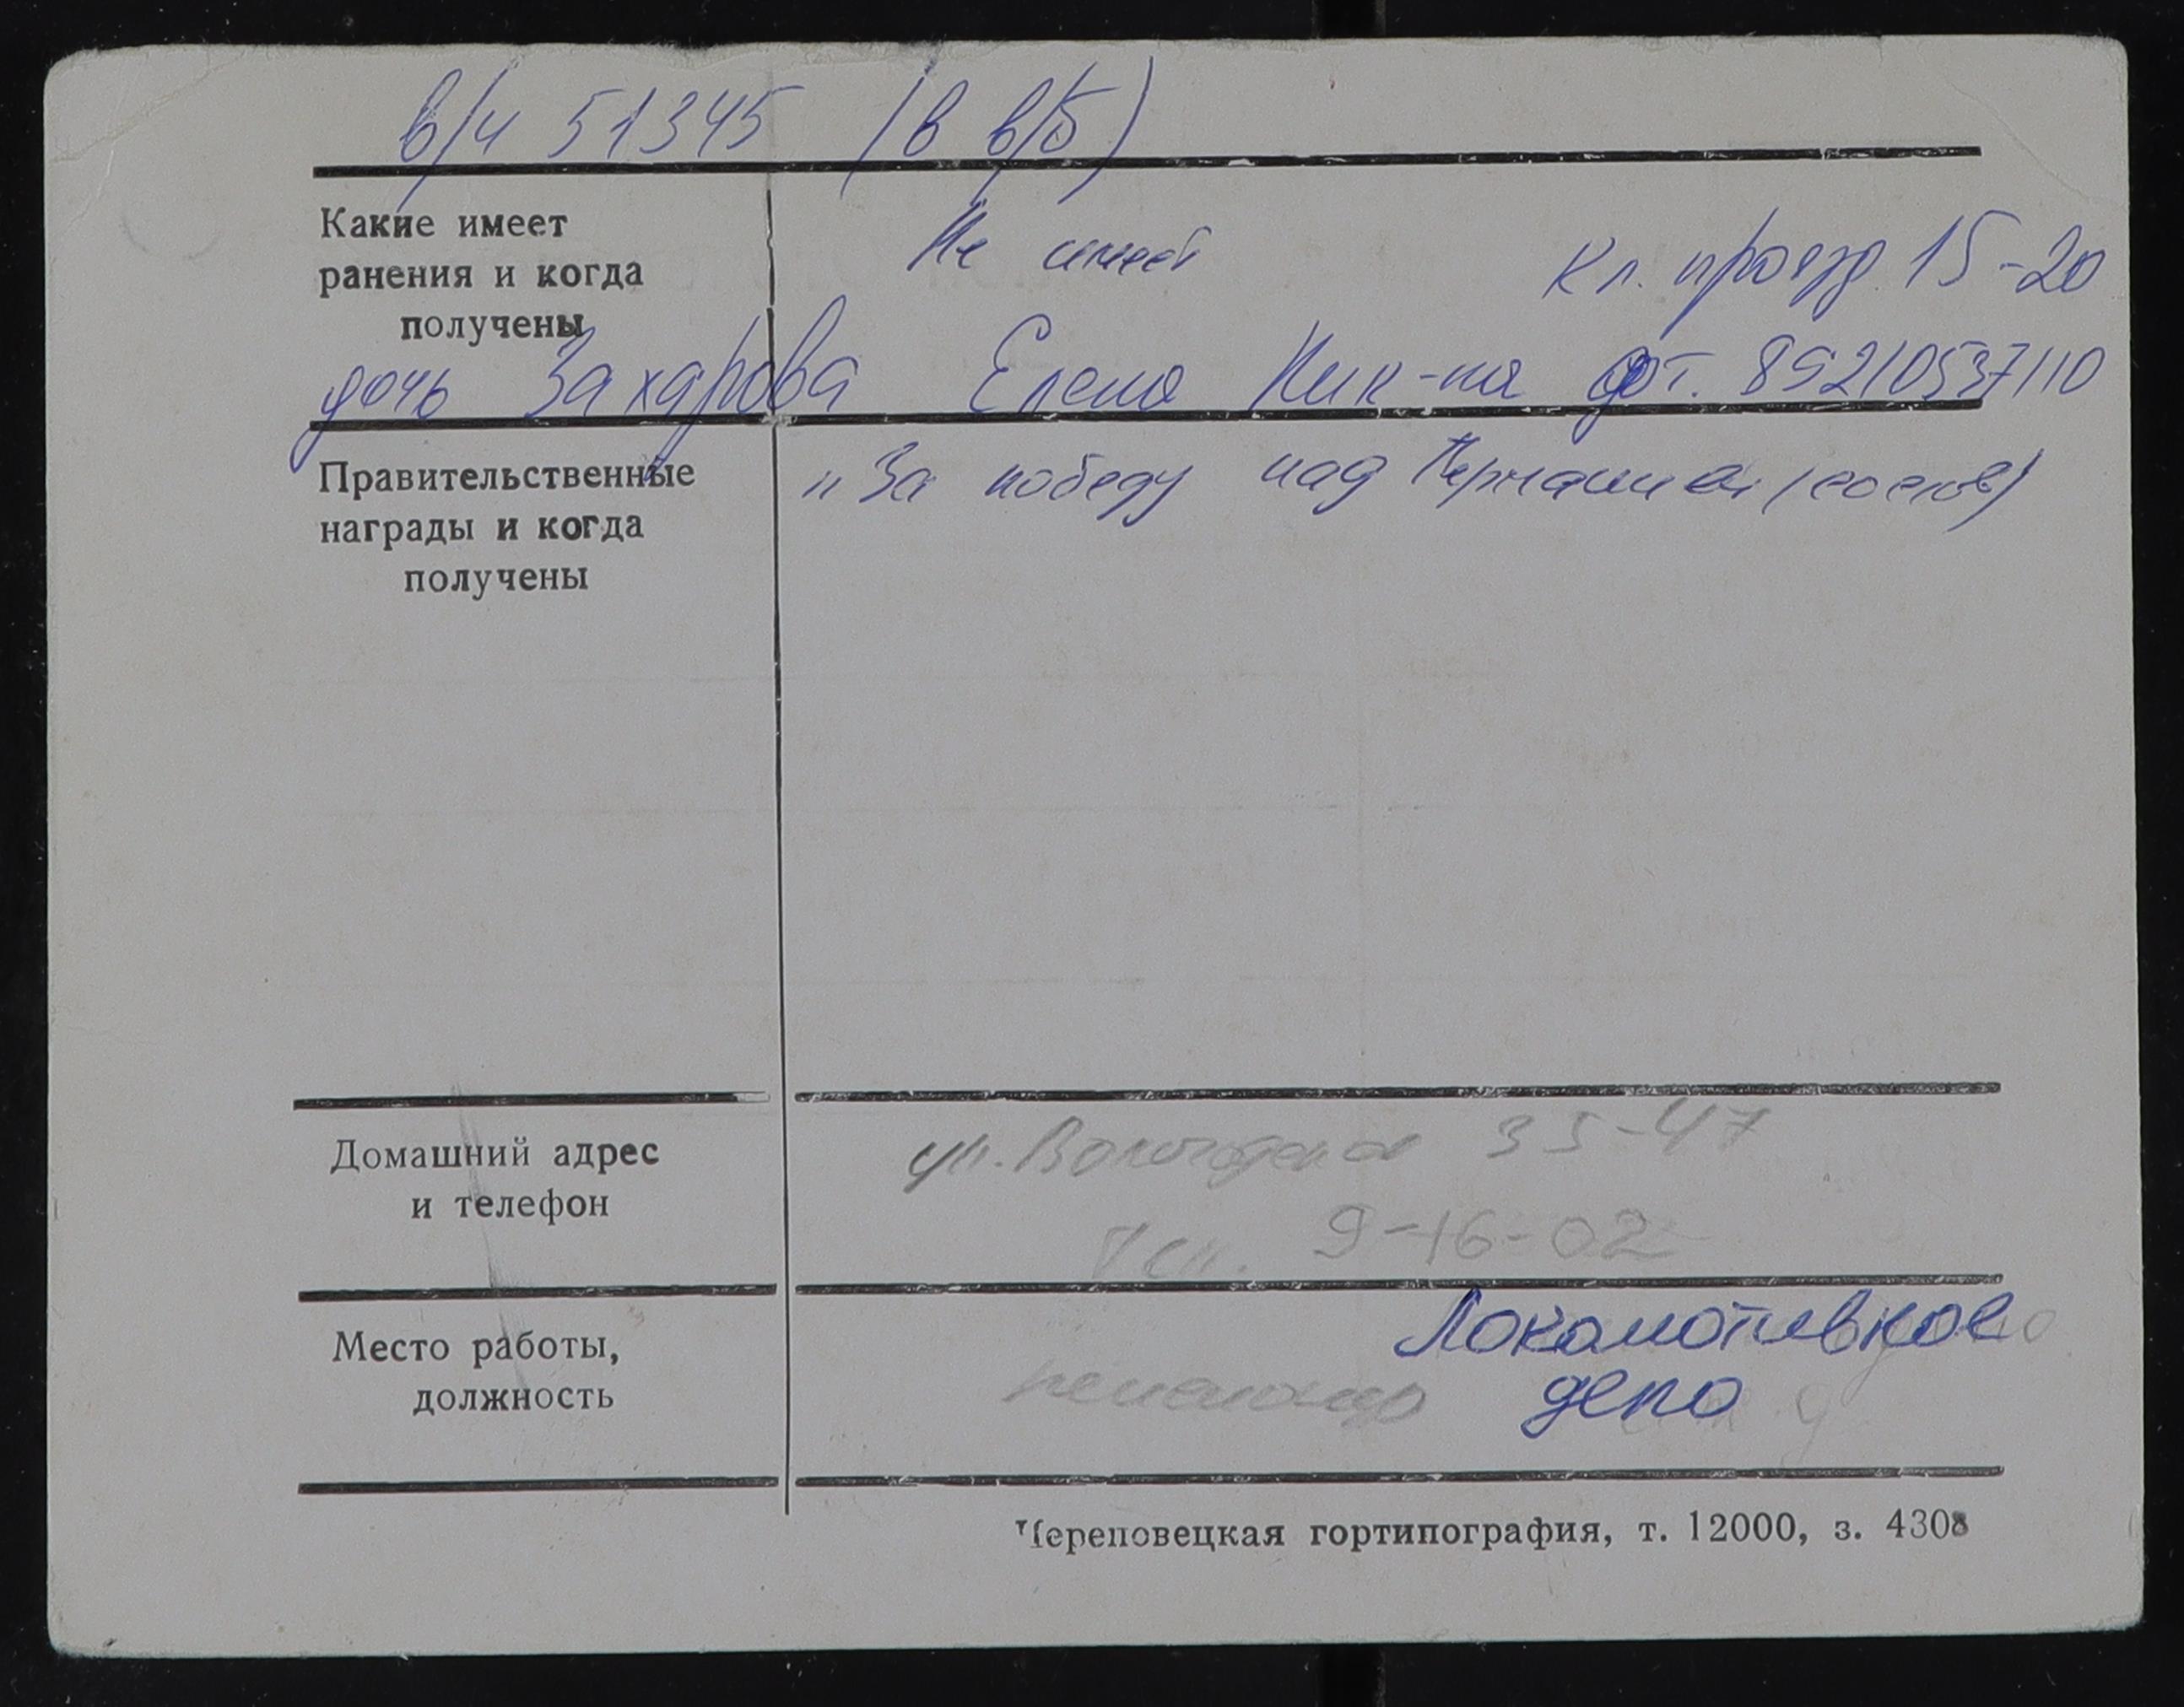 в/ч 51345 (в в/б)
Какие имеет
ранения и когда
получены
Не имеет
Кл. проезд 15-20
дочь Захарова Елена Ник-на т. 89210537110
Правительственные
награды и когда
получены
„За победу над Германией (
Домашний адрес
и телефон
ул. Вологодская 35-47
Тел. 9-16-02
Место работы,
должность
Локомотивное
пенсионер депо
Череповецкая гортипография, т. 12000, з. 4308